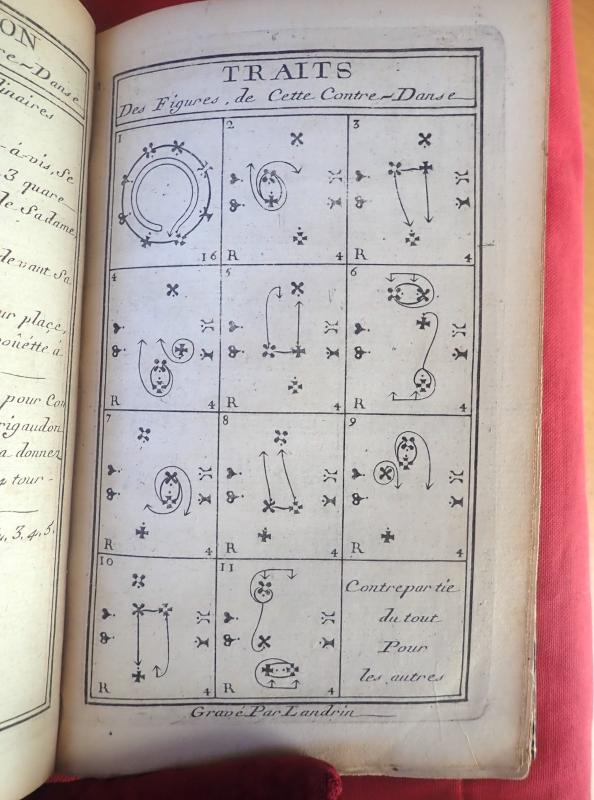 ON
re-Danse
linaires
-à-vis, Se
3 quare
de Sadame
devant Sa
ur plaçe,
pouëtte à
pour Con
rigaudon
a donnez
tour-
3, 4, 5.
TRAITS
Des Figures, de Cette Contre-Danse
1
16
2
R 4
3
R 4
4
R 4
5
R 4
6
R 4
7
R 4
8
R 4
9
R 4
10
R 4
11
R 4
Contrepartie
du tout
Pour
les autres
Gravé Par Landrin